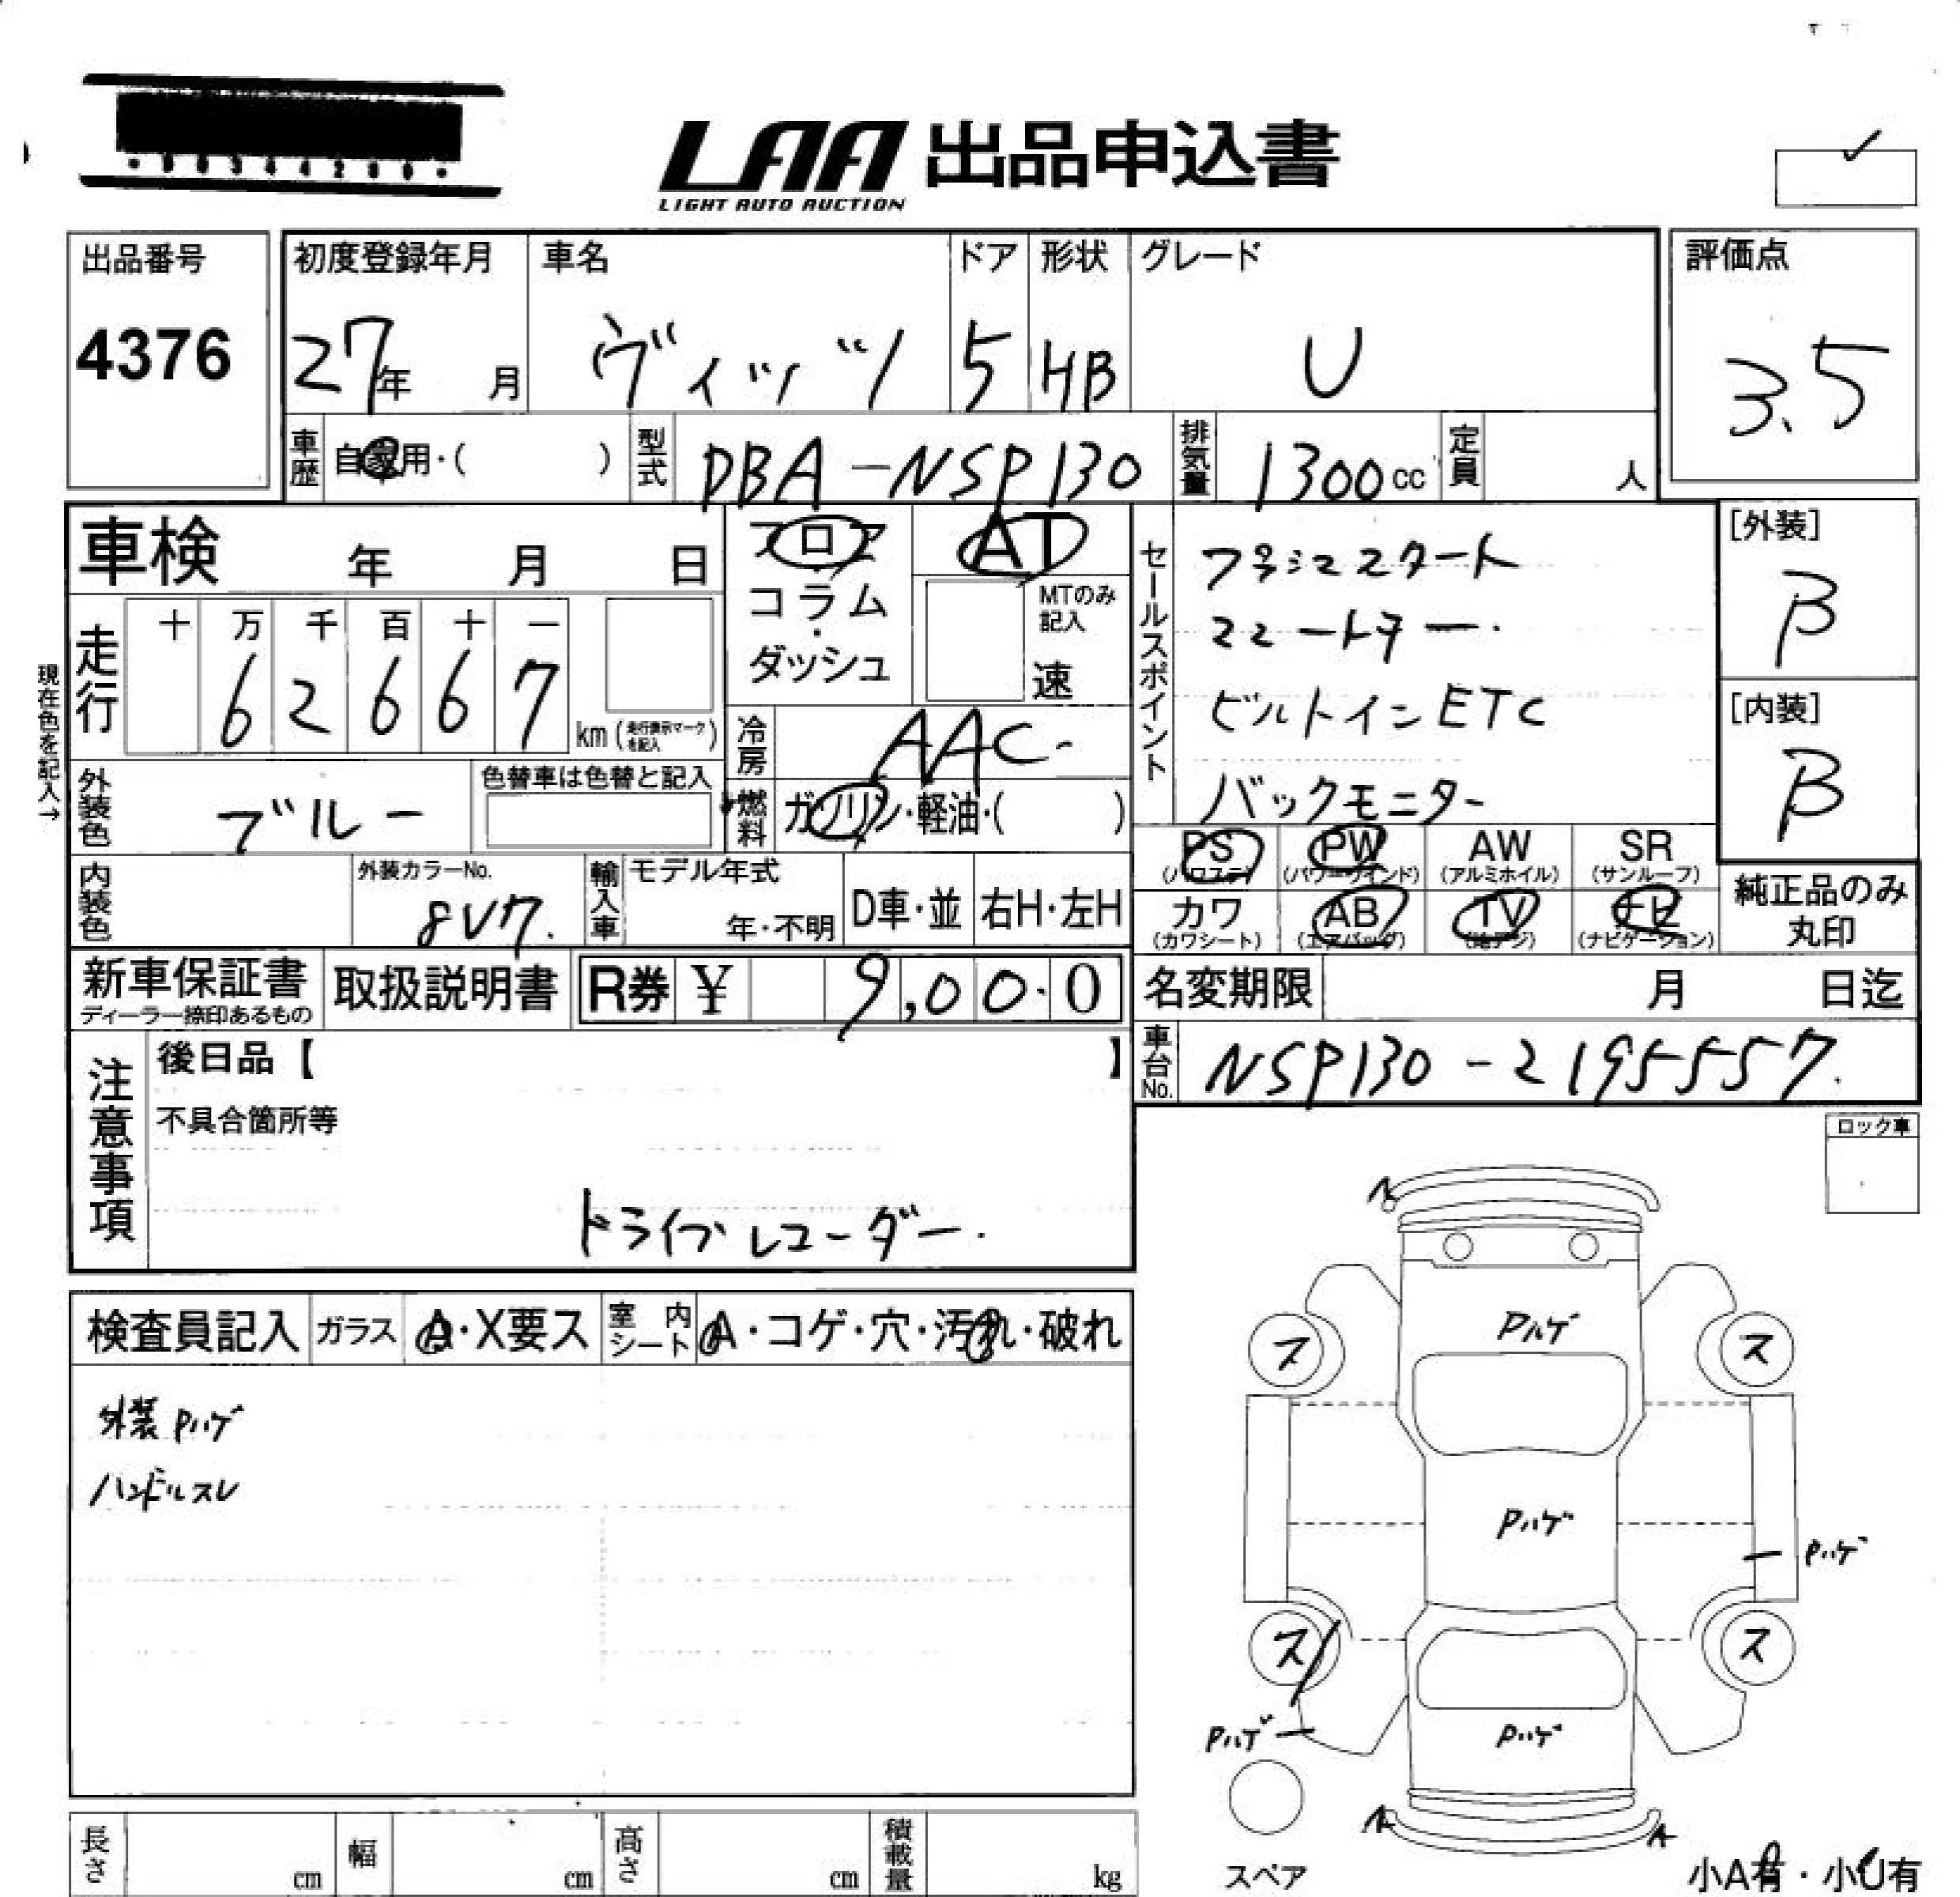 LAA 出品申込書
LIGHT AUTO AUCTION
出品番号
4376
初度登録年月
27年 月
車名
ヴィッツ
ドア
5
形状
HB
グレード
U
評価点
3.5
車歴
自家用・( )
型式
DBA-NSP130
排気量
1300cc
定員
人
車検 年 月 日
フロア
コラム
・
ダッシュ
AT
MTのみ
記入
速
セールスポイント
プッシュスタート
スマートキー.
ビルトインETC
バックモニター
[外装]
B
[内装]
B
現在色を記入→
走行
十 万 千 百 十 一
6 2 6 6 7
km(走行表示マークを記入)
冷房
AAC-
外装色
ブルー
色替車は色替と記入
燃料
ガソリン・軽油・( )
PS
(パワステ)
PW
(パワーウインド)
AW
(アルミホイル)
SR
(サンルーフ)
内装色
外装カラーNo.
8V7.
輸入車
モデル年式
年・不明
D車・並
右H・左H
カワ
(カワシート)
AB
(エアバッグ)
TV
(地デジ)
ナビ
(ナビゲーション)
純正品のみ
丸印
新車保証書
ディーラー捺印あるもの
取扱説明書
R券 ¥ 9,000
名変期限 月 日迄
車台No.
NSP130-2195557.
注意事項
後日品【 】
不具合箇所等
ドライブレコーダー.
ロック車
検査員記入
ガラス
A・X要ス
室内シート
A・コゲ・穴・汚れ・破れ
外装Pハゲ
ハンドルスレ
A
Pハゲ
ス
ス
Pハゲ
Pハゲ
ス
ス
Pハゲ
Pハゲ
A
A
スペア
小A有・小U有
長さ cm
幅 cm
高さ cm
積載量 kg